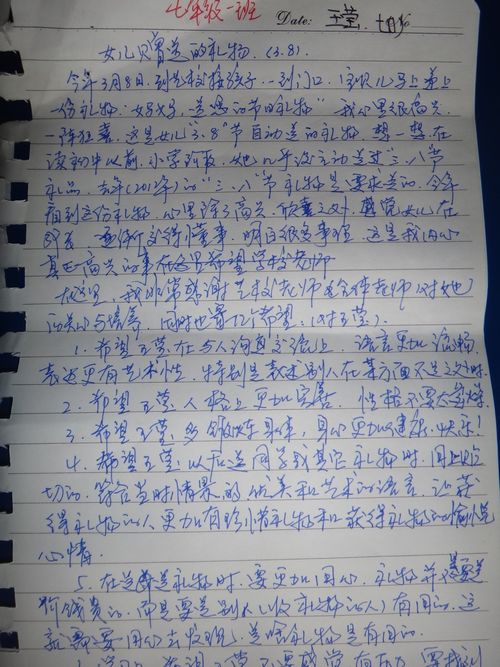 七年级一班
Date: 王莹
女儿贝曾送的礼物.(3.8).
今年3月8日.到艺校接孩子.一到门口.宝贝儿马上递上
一份礼物."好妈妈.送您的节日礼物"我心里很高兴.
一阵狂喜.这是女儿"3.8"节自动送的礼物.想一想.在
读初中以前.小学阶段.她几乎没主动送过"三.八"节
礼品.去年(2012年)的"三.八"节礼物是要求送的.今年
看到这份礼物.心里除了高兴.欣喜之外.感觉女儿在
变得懂事.明白很多事理.这是我内心
真正高兴的事在这里希望学校老师
在这里.我非常感谢艺校老师 老师(对她)
的关心与培养.同时也寄几个希望:(对王莹).
1.希望王莹在与人沟通交流上.语言更加流畅
表达更有艺术性.特别是表述别人在某方面不足之处时.
2.希望王莹人格上更加完善.性格不要太急燥
3.希望王莹多锻炼身体.身心更加健康.快乐!
4.希望王莹以后送同学或其它礼物时.用上贴
切的.符合当时情景的优美和艺术的语言.让获
得礼物的人更加有珍惜礼物和获得礼物的愉悦
心情.
5.在送礼物时.要更加用心.礼物并不是要送
价钱贵的.而是要送别人(收礼物的人)有用的.这
就需要用心去发现.送啥礼物是有用的.